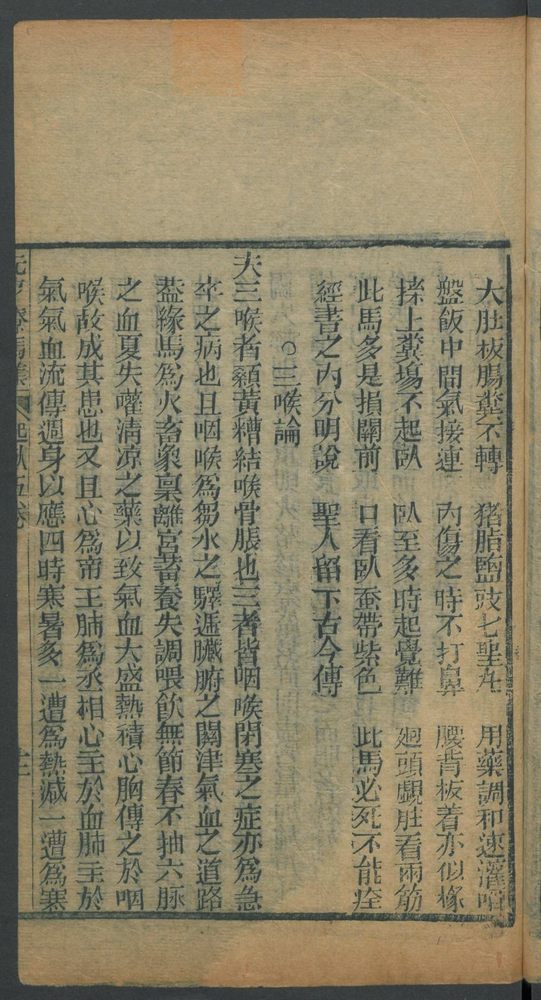 大肚板腸糞不轉　猪脂鹽豉七聖丸　用藥調和速灌咽
盤飯中間氣接連　內傷之時不打鼻　腰背板着亦似椽
探上糞塲不起臥　臥至多時起覺難　廻頭覷肚看兩筋
此馬多是損關前　口看臥蚕帶紫色　此馬必死不能痊
經書之內分明說　聖人留下古今傳
○三喉論
夫三喉者顙黃糟結喉骨脹也三者皆咽喉閉塞之症亦爲急
卒之病也且咽喉爲芻水之驛逓臟腑之關津氣血之道路
葢緣馬爲火畜象禀離宮蓄養失調喂飲無節春不抽六脉
之血夏失嚾清凉之藥以致氣血大盛熱積心胸傳之於咽
喉故成其患也又且心爲帝王肺爲丞相心主於血肺主於
氣氣血流傳週身以應四時寒暑多一遭爲熱減一遭爲寒
元亨療馬集　起臥五卷　十二